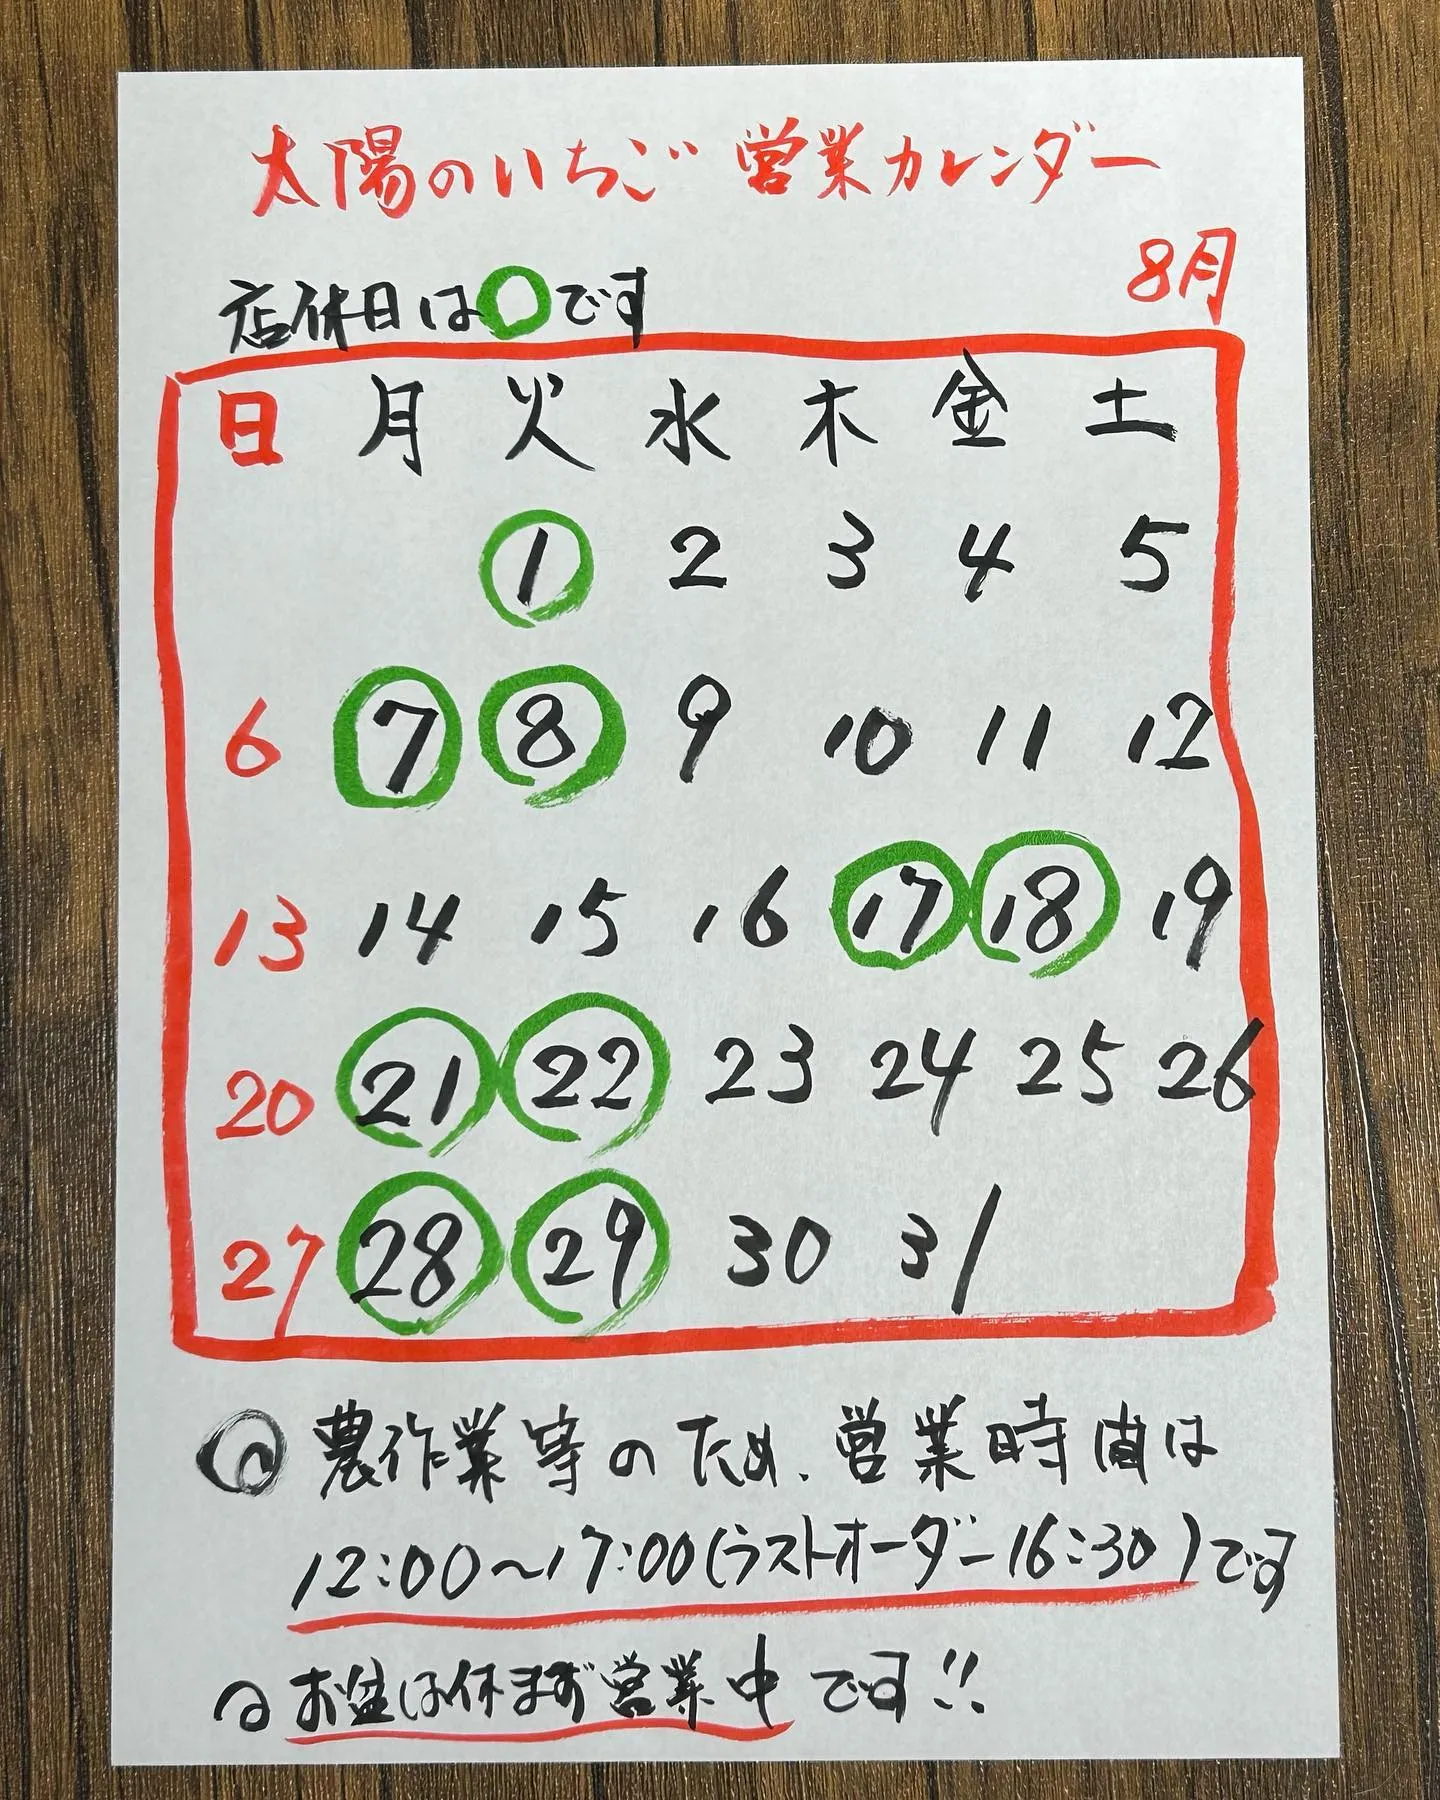 太陽のいちご 営業カレンダー
8月
店休日は○です
日 月 火 水 木 金 土
1 2 3 4 5
6 7 8 9 10 11 12
13 14 15 16 17 18 19
20 21 22 23 24 25 26
27 28 29 30 31
◎ 農作業等のため、営業時間は
12:00〜17:00(ラストオーダー16:30)です
お盆は休まず営業中です!!